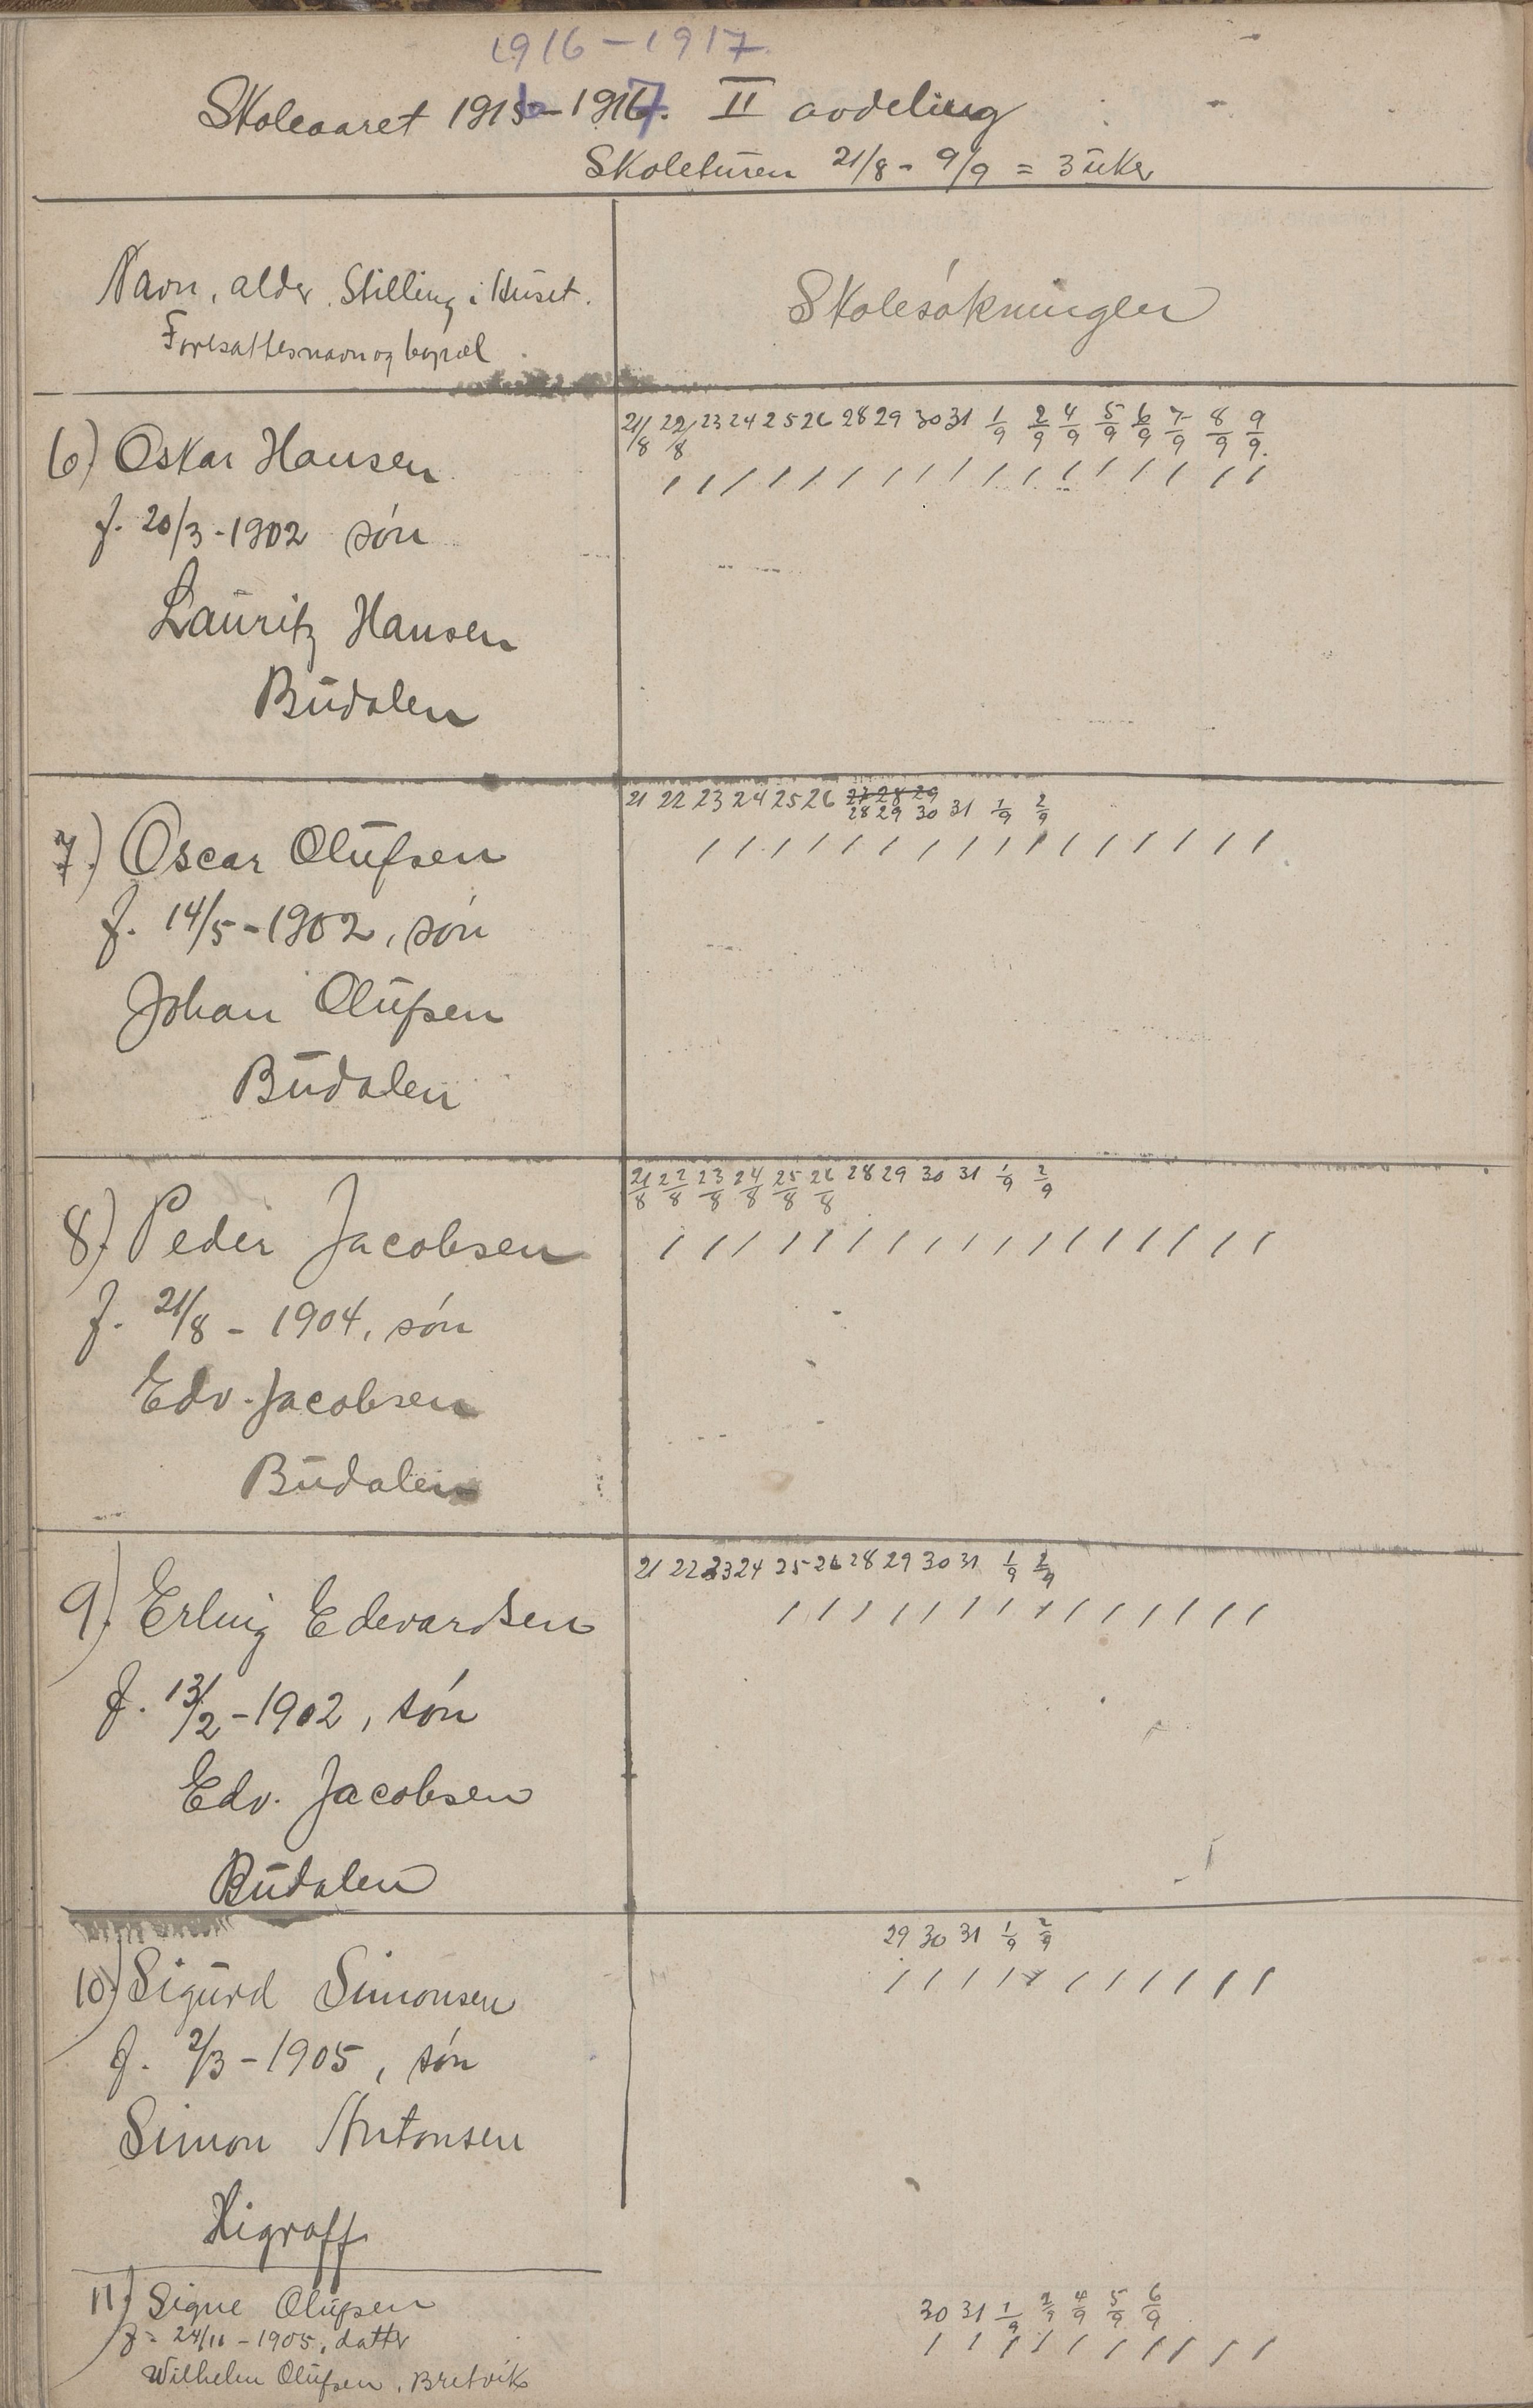 1916-1917.
Skoleaaret 1916-1917. II avdeling
Skoleturen 21/8 - 9/9 = 3 uker
Navn, alder, Stilling i Huset.
Foresattes navn og bopæl
Skolesøkninglen
21/8 22/8 23 24 25 26 28 29 30 31 1/9 2/9 4/9 5/9 6/9 7/9 8/9 9/9.
6) Oskar Hansen
/ / / / / / / / / / / / / / / / /
f. 20/3-1902 søn
Lauritz Hansen
Budalen
21 22 23 24 25 26 27 28 29
28 29 30 31 1/9 2/9
7.) Oscar Olufsen
/ / / / / / / / / / / / / / / /
f. 14/5-1902, søn
Johan Olufsen
Budalen
21/8 22/8 23/8 24/8 25/8 26/8 28 29 30 31 1/9 2/9
8) Peder Jacobsen
/ / / / / / / / / / / / / / / / /
f. 21/8 - 1904, søn
Edv. Jacobsen
Budalen
21 22 23 24 25 26 28 29 30 31 1/9 2/9
9). Erling Edevardsen
/ / / / / / / / / / / / / /
f. 13/2-1902, søn
Edv. Jacobsen
Budalen
29 30 31 1/9 2/9
10) Sigurd Simonsen
/ / / / / / / / / / /
f. 2/3-1905, søn
Simon Antonsen
Higraff
30 31 1/9 2/9 4/9 5/9 6/9
11) Signe Olufsen
/ / / / / / / / / /
f= 24/11-1905, datter
Wilhelm Olufsen, Bretvik